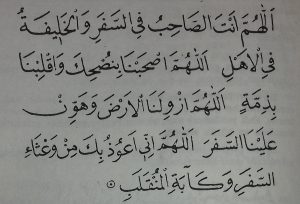 اَللّٰهُمَّ اَنْتَ الصَّاحِبُ فِي السَّفَرِ وَالْخَلِيفَةُ
فِي الْاَهْلِ اَللّٰهُمَّ اصْحَبْنَا بِنُصْحِكَ وَاقْلِبْنَا
بِذِمَّةٍ اَللّٰهُمَّ ازْوِ لَنَا الْاَرْضَ وَهَوِّنْ
عَلَيْنَا السَّفَرَ اَللّٰهُمَّ اِنِّي اَعُوذُ بِكَ مِنْ وَعْثَاءِ
السَّفَرِ وَكَآبَةِ الْمُنْقَلَبِ